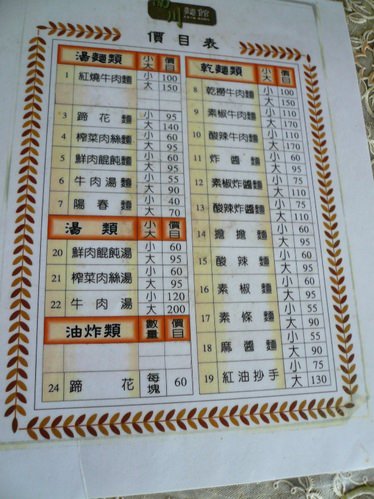 川 麵館
價目表
湯麵類 小大 價目
1 紅燒牛肉麵 小 100
大 150
3 蹄花麵 小 95
大 140
4 榨菜肉絲麵 小 60
大 95
5 鮮肉餛飩麵 小 60
大 95
6 牛肉湯麵 小 55
大 90
7 陽春麵 小 40
大 70
湯類 小大 價目
20 鮮肉餛飩湯 小 60
大 95
21 榨菜肉絲湯 小 60
大 95
22 牛肉湯 小 120
大 200
油炸類 數量 價目
24 蹄花 每塊 60
乾麵類 小大 價目
8 乾撈牛肉麵 小 100
大 150
9 素椒牛肉麵 小 110
大 170
10 酸辣牛肉麵 小 110
大 170
11 炸醬麵 小 55
大 90
12 素椒炸醬麵 小 60
大 95
13 酸辣炸醬麵 小 60
大 95
14 擔擔麵 小 60
大 95
15 酸辣麵 小 60
大 95
16 素椒麵 小 60
大 95
17 素條麵 小 55
大 90
18 麻醬麵 小 55
大 90
19 紅油抄手 小 75
大 130